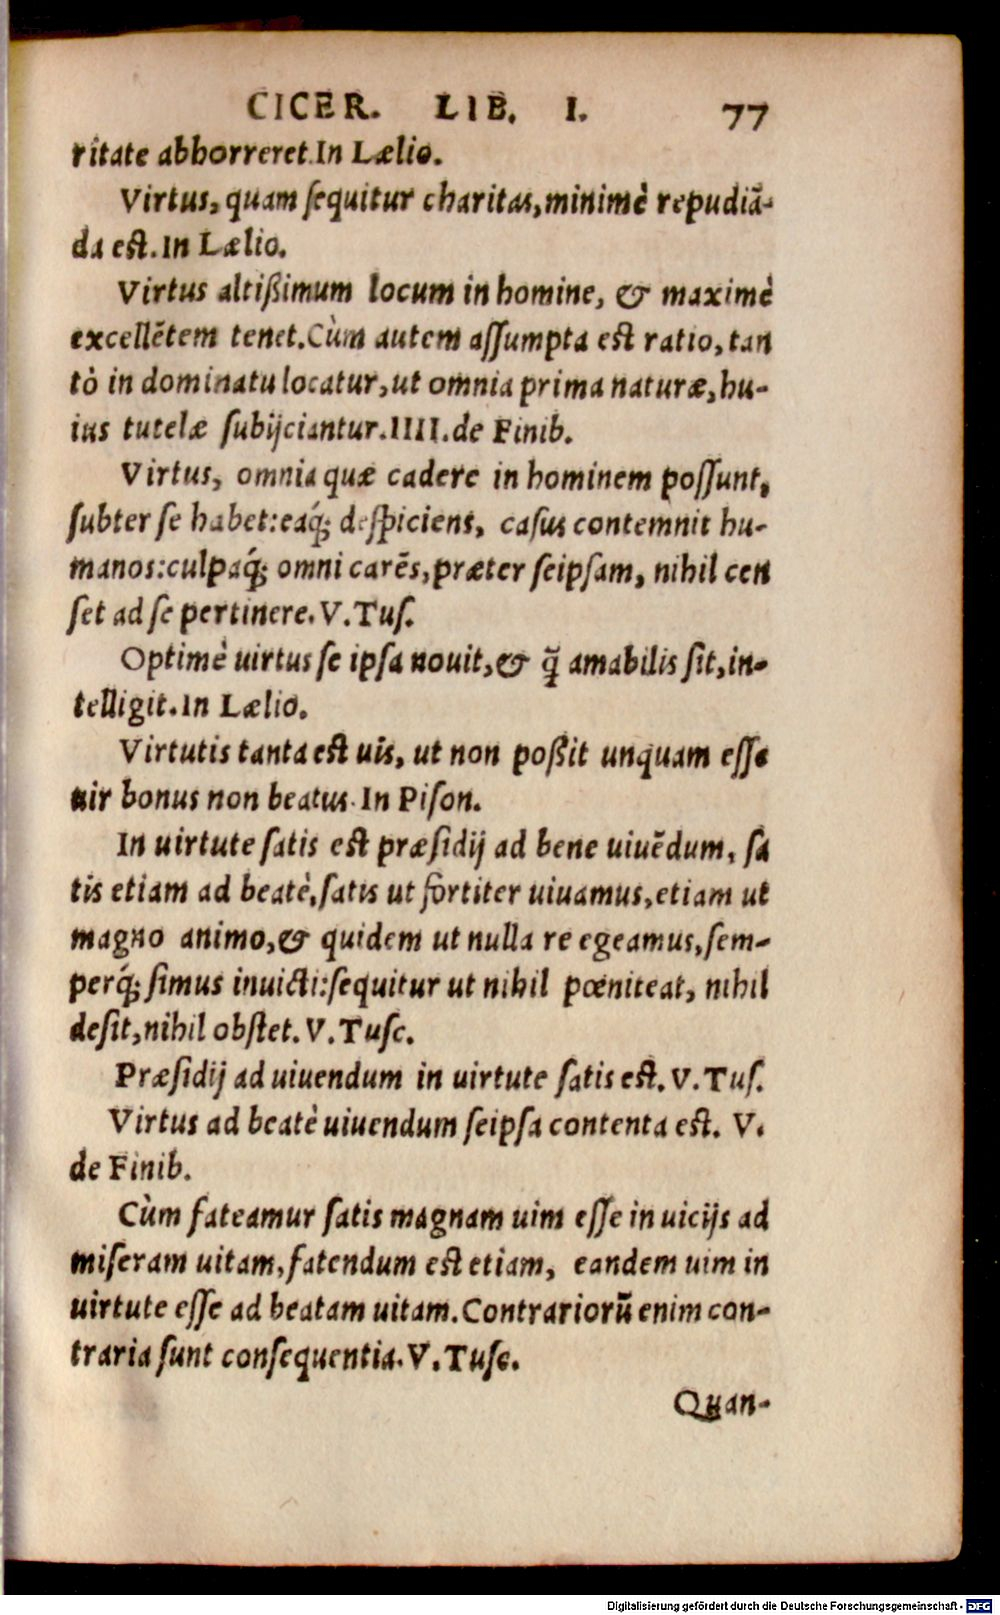 CICER. LIB. I. 77
ritate abhorreret. In Lælio.
Virtus, quam ſequitur charitas, minimè repudiã-
da est. In Lælio.
Virtus altißimum locum in homine, & maximè
excellẽtem tenet. Cùm autem aſſumpta est ratio, tan
tò in dominatu locatur, ut omnia prima naturæ, hu-
ius tutelæ ſubijciantur. IIII. de Finib.
Virtus, omnia quæ cadere in hominem poſſunt,
ſubter ſe habet: eaq́; deſpiciens, caſus contemnit hu-
manos: culpaq́; omni carẽs, præter ſeipſam, nihil cen
ſet ad ſe pertinere. V. Tuſ.
Optimè uirtus ſe ipſa nouit, & q̃ amabilis ſit, in-
telligit. In Lælio.
Virtutis tanta est uis, ut non poßit unquam eſſe
uir bonus non beatus. In Piſon.
In uirtute ſatis est præſidij ad bene uiuẽdum, ſa
tis etiam ad beatè, ſatis ut fortiter uiuamus, etiam ut
magno animo, & quidem ut nulla re egeamus, ſem-
perq́; ſimus inuicti: ſequitur ut nihil pœniteat, nihil
deſit, nihil obſtet. V. Tuſc.
Præſidij ad uiuendum in uirtute ſatis est. V. Tuſ.
Virtus ad beatè uiuendum ſeipſa contenta est. V.
de Finib.
Cùm fateamur ſatis magnam uim eſſe in uicijs ad
miſeram uitam, fatendum est etiam, eandem uim in
uirtute eſſe ad beatam uitam. Contrariorũ enim con-
traria ſunt conſequentia. V. Tuſc.
Quan-
Digitalisierung gefördert durch die Deutsche Forschungsgemeinschaft - DFG